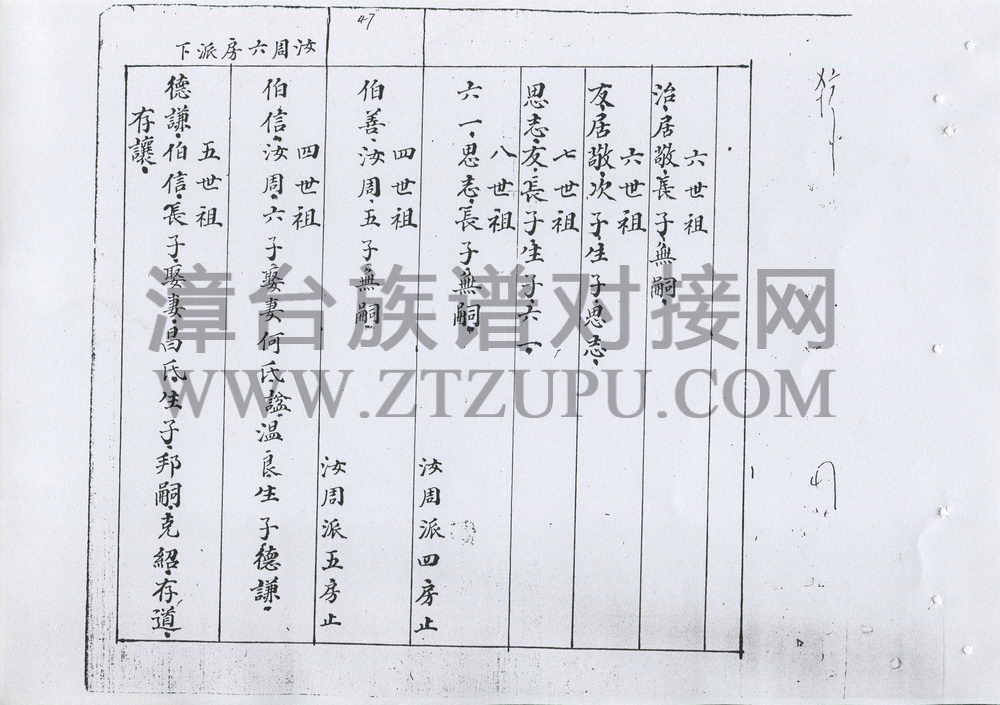 47
汝周六房派下
六世祖
治居敬長子無嗣
六世祖
友居敬次子生子思志
七世祖
思志友長子生子六一
八世祖
六一思志長子無嗣
汝周派四房止
四世祖
伯善汝周五子無嗣
汝周派五房止
四世祖
伯信汝周六子娶妻何氏諡温良生子德謙
五世祖
德謙伯信長子娶妻昌氏生子邦嗣克紹存道
存讓
漳台族谱对接网
WWW.ZTZUPU.COM